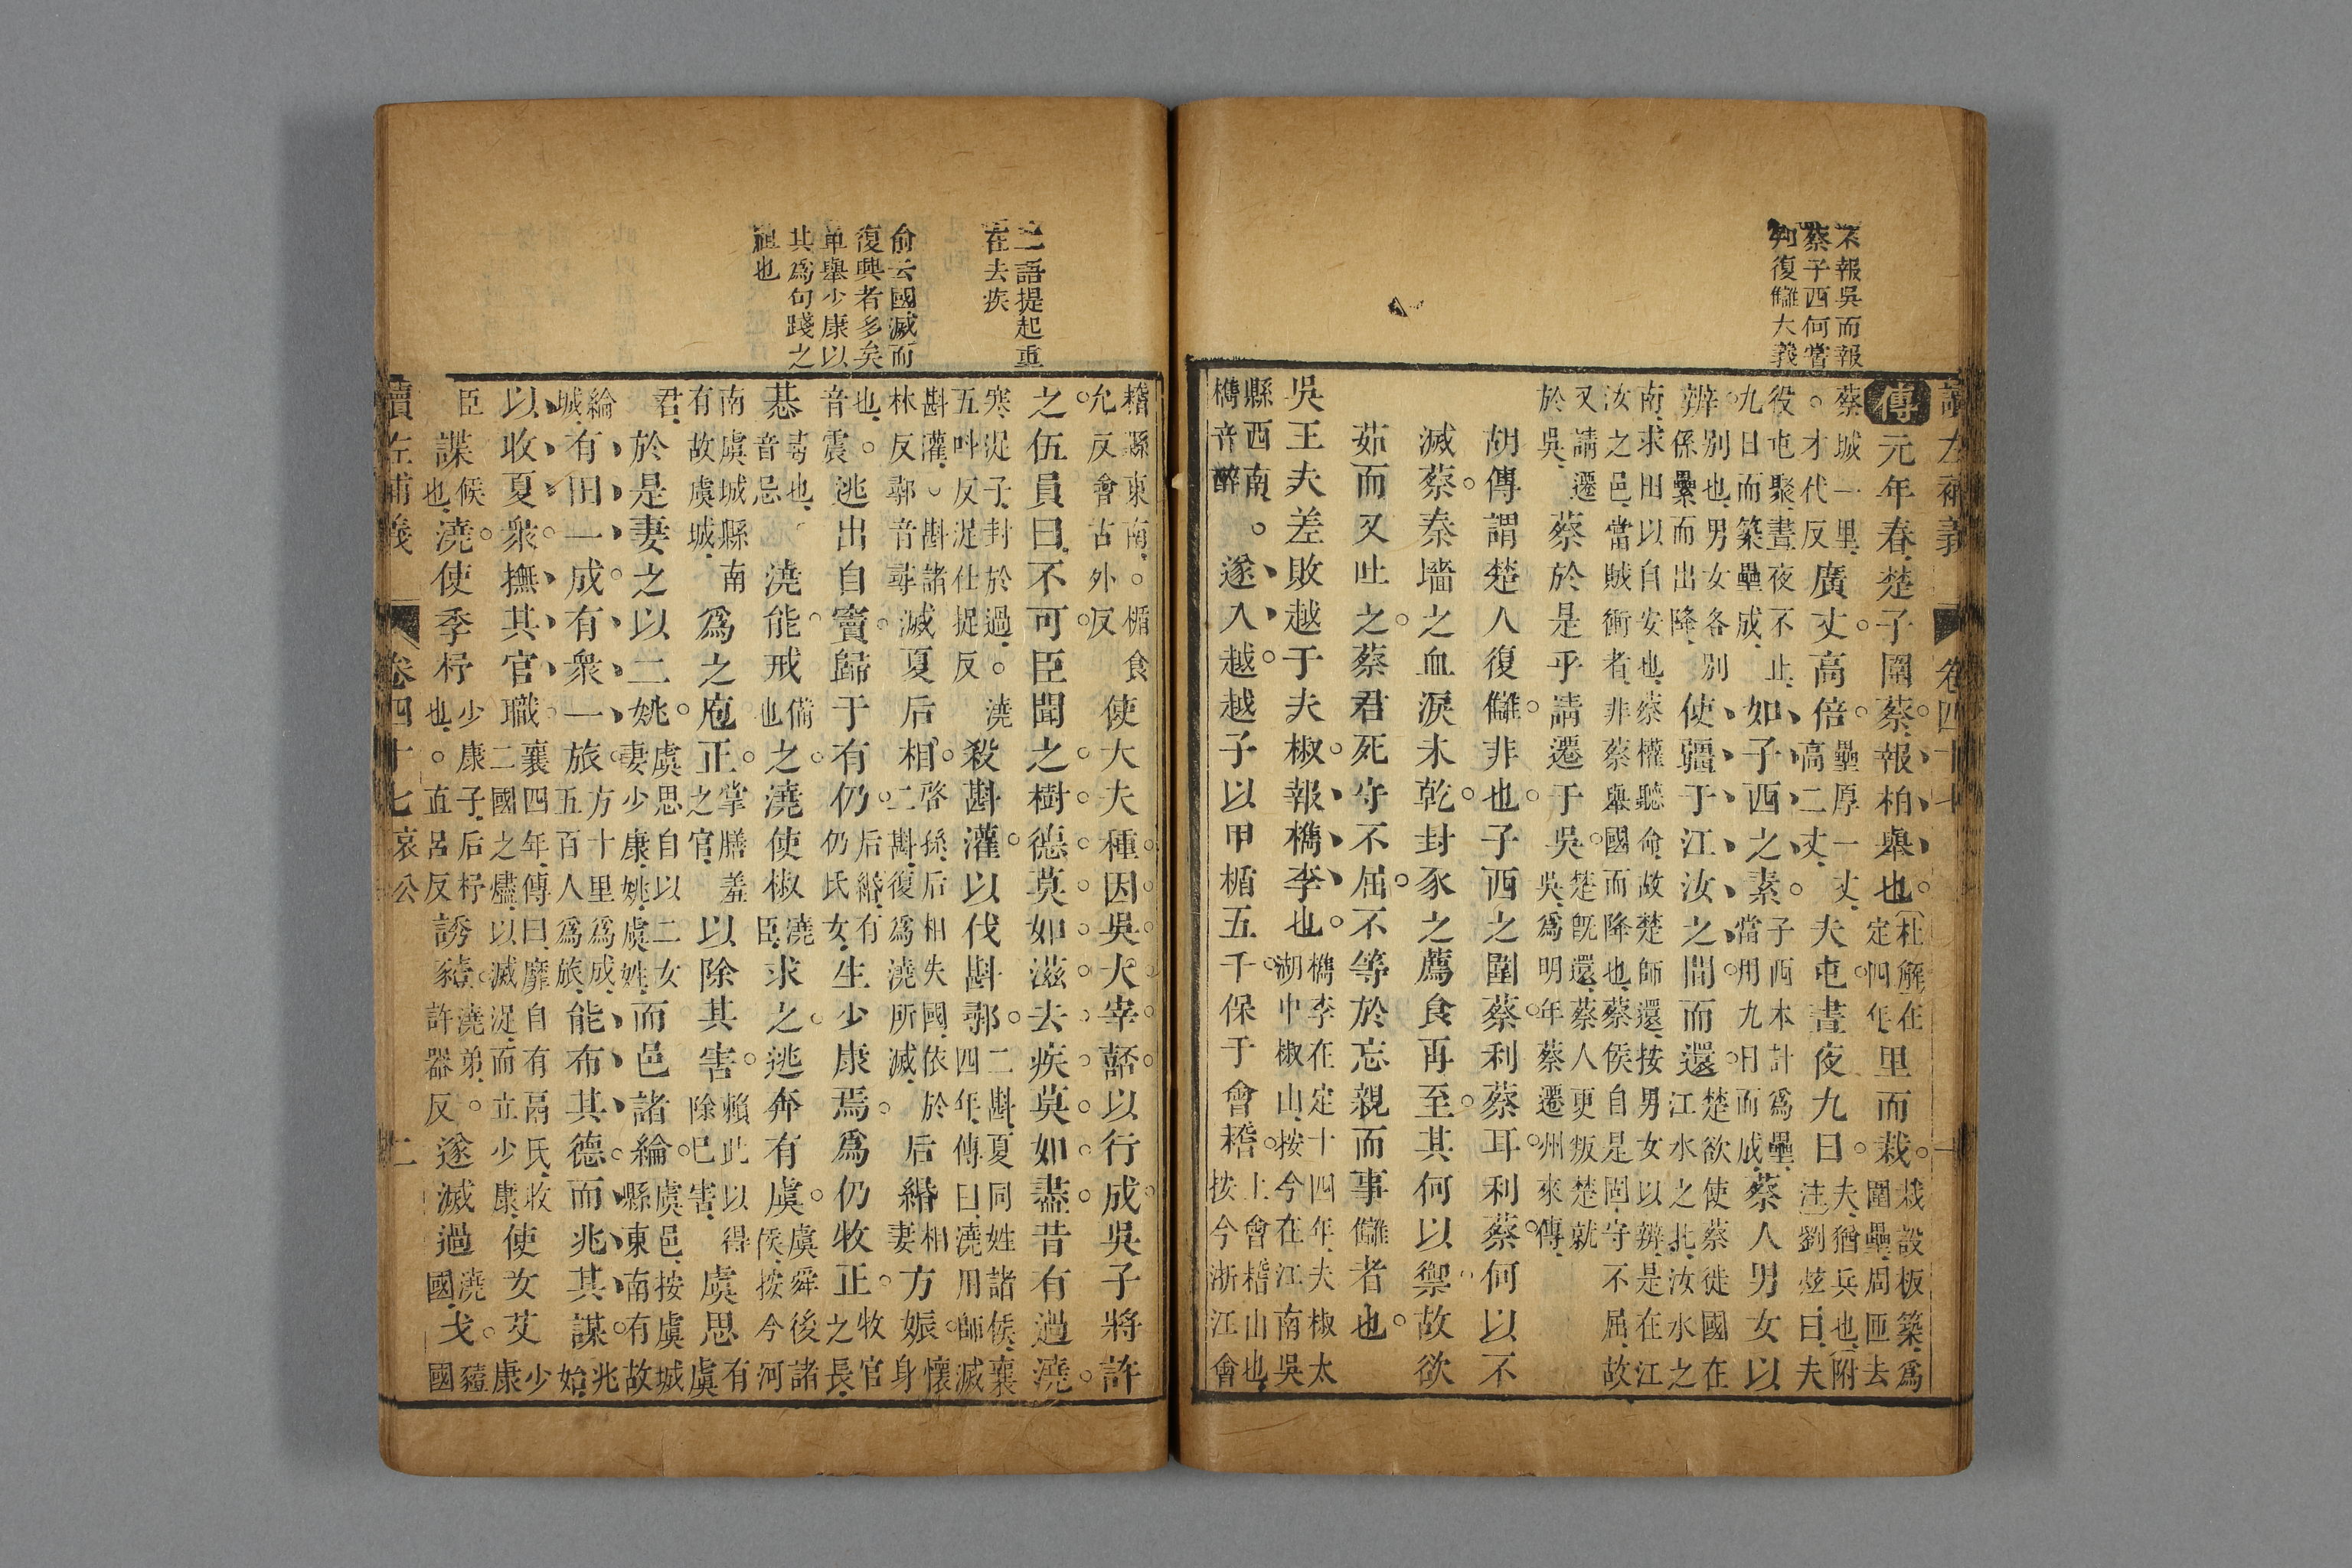 不報吳而報
蔡子西何嘗
知復讎大義
讀左補義 卷四十七
傳元年春楚子圍蔡報柏舉也杜解在定四年里而栽栽設板築為圍壘周匝去
蔡城一里。才代反廣丈高倍壘厚一丈高二丈夫屯晝夜九日夫猶兵也附注劉炫曰夫
役屯聚晝夜不止九日而築壘成如子西之素子西本計為壘當用九日而成蔡人男女以
辨別也男女各別係纍而出降使疆于江汝之間而還楚欲使蔡徙國在江水之北汝水之
南求田以自安也蔡權聽命故楚師還按男女以辨是在江汝之邑當賊衝者非蔡舉國而降也蔡侯自是固守不屈故
又請遷於吳蔡於是乎請遷于吳楚既還蔡人更叛楚就吳為明年蔡遷州來傳
胡傳謂楚人復讎非也子西之圍蔡利蔡耳利蔡何以不
滅蔡秦墻之血淚未乾封豕之薦食再至其何以禦故欲
茹而又吐之蔡君死守不屈不等於忘親而事讎者也
吳王夫差敗越于夫椒報檇李也檇李在定十四年夫椒太湖中椒山按今在江南吳
縣西南。檇音醉遂入越越子以甲楯五千保于會稽上會稽山也按今浙江會
二語提起重
在去疾
俞云國滅而
復興者多矣
單舉少康以
其為句踐之
祖也
稽縣東南。楯食允反會古外反使大夫種因吳大宰嚭以行成吳子將許
之伍員曰不可臣聞之樹德莫如滋去疾莫如盡昔有過澆
寒浞子封於過。澆五呌反浞仕捉反殺斟灌以伐斟鄩二斟夏同姓諸侯襄四年傳曰澆用師滅
斟灌。斟諸林反鄩音尋滅夏后相啓孫后相失國依於二斟復為澆所滅后緡相妻方娠懷身
也。音震逃出自竇歸于有仍后緡有仍氏女生少康焉為仍牧正牧官之長
惎毒也音忌澆能戒備也之澆使椒澆臣求之逃奔有虞虞舜後諸侯按今河
南虞城縣南有故虞城為之庖正掌膳羞之官以除其害賴此以得除己害虞思有虞
君於是妻之以二姚虞思自以二女妻少康姚虞姓而邑諸綸虞邑按虞城縣東南有故
綸城有田一成有眾一旅方十里為成五百人為旅能布其德而兆其謀兆始
以收夏眾撫其官職襄四年傳曰靡自有鬲氏收二國之燼以滅浞而立少康使女艾少康
臣諜候也澆使季杼少康子后杼也。直呂反誘豷澆弟。許器反遂滅過澆國戈豷國
讀左補義 卷四十七哀公 二